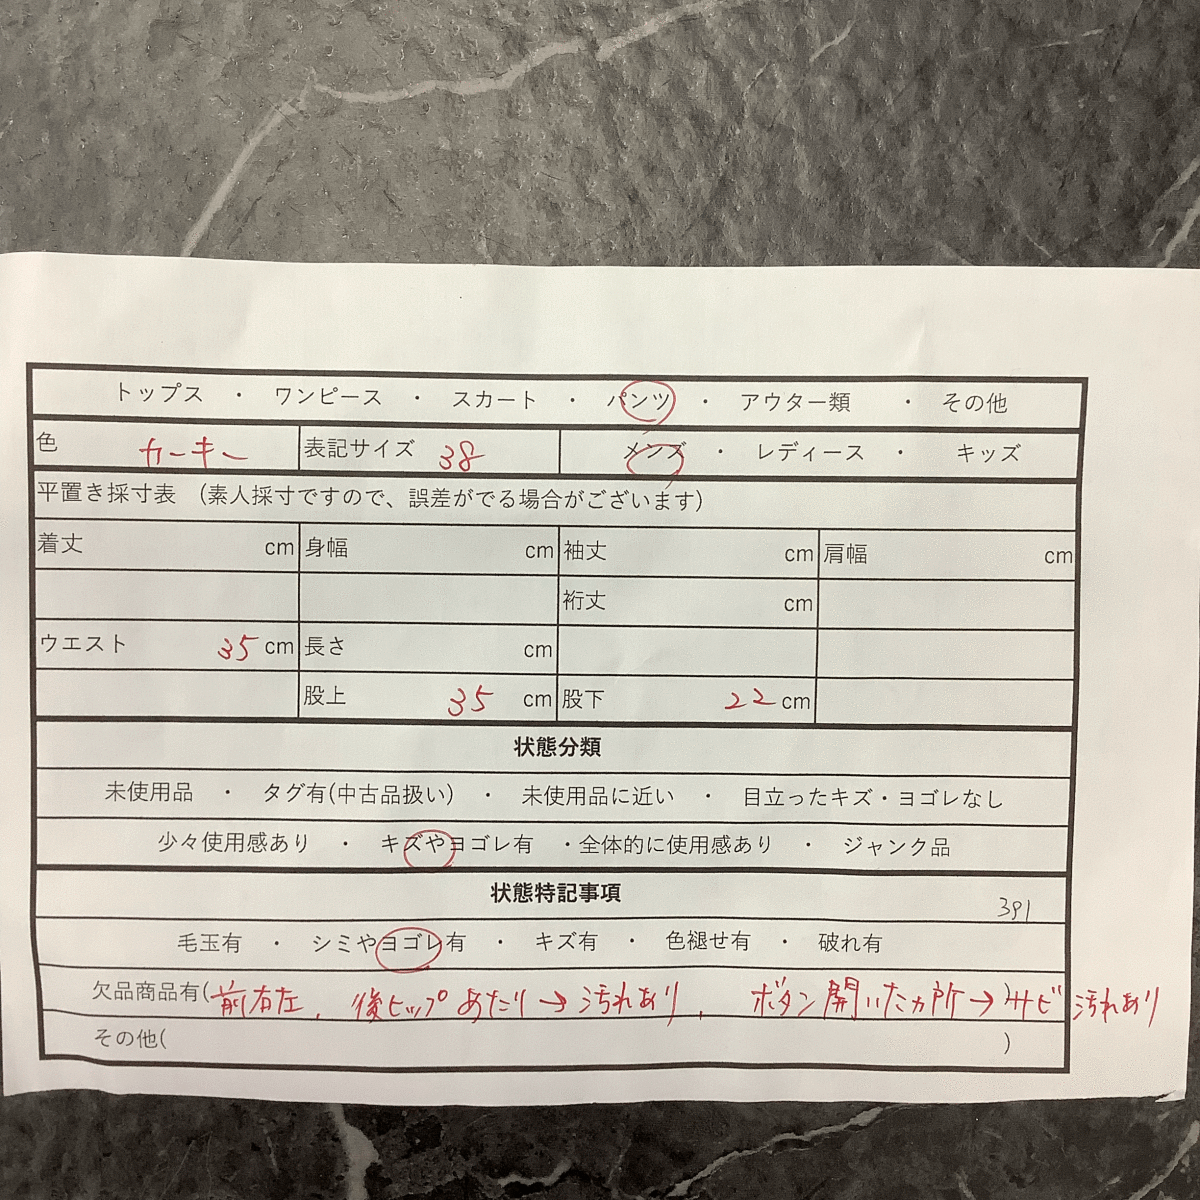 トップス ・ ワンピース ・ スカート ・ パンツ ・ アウター類 ・ その他
色 カーキー 表記サイズ 38 メンズ ・ レディース ・ キッズ
平置き採寸表 (素人採寸ですので、誤差がでる場合がございます)
着丈 cm 身幅 cm 袖丈 cm 肩幅 cm
裄丈 cm
ウエスト 35 cm 長さ cm
股上 35 cm 股下 22 cm
状態分類
未使用品 ・ タグ有(中古品扱い) ・ 未使用品に近い ・ 目立ったキズ・ヨゴレなし
少々使用感あり ・ キズやヨゴレ有 ・全体的に使用感あり ・ ジャンク品
状態特記事項 391
毛玉有 ・ シミやヨゴレ有 ・ キズ有 ・ 色褪せ有 ・ 破れ有
欠品商品有(前右左、後ヒップあたり→汚れあり、 ボタン開いたカ所→)サビ汚れあり
その他( )